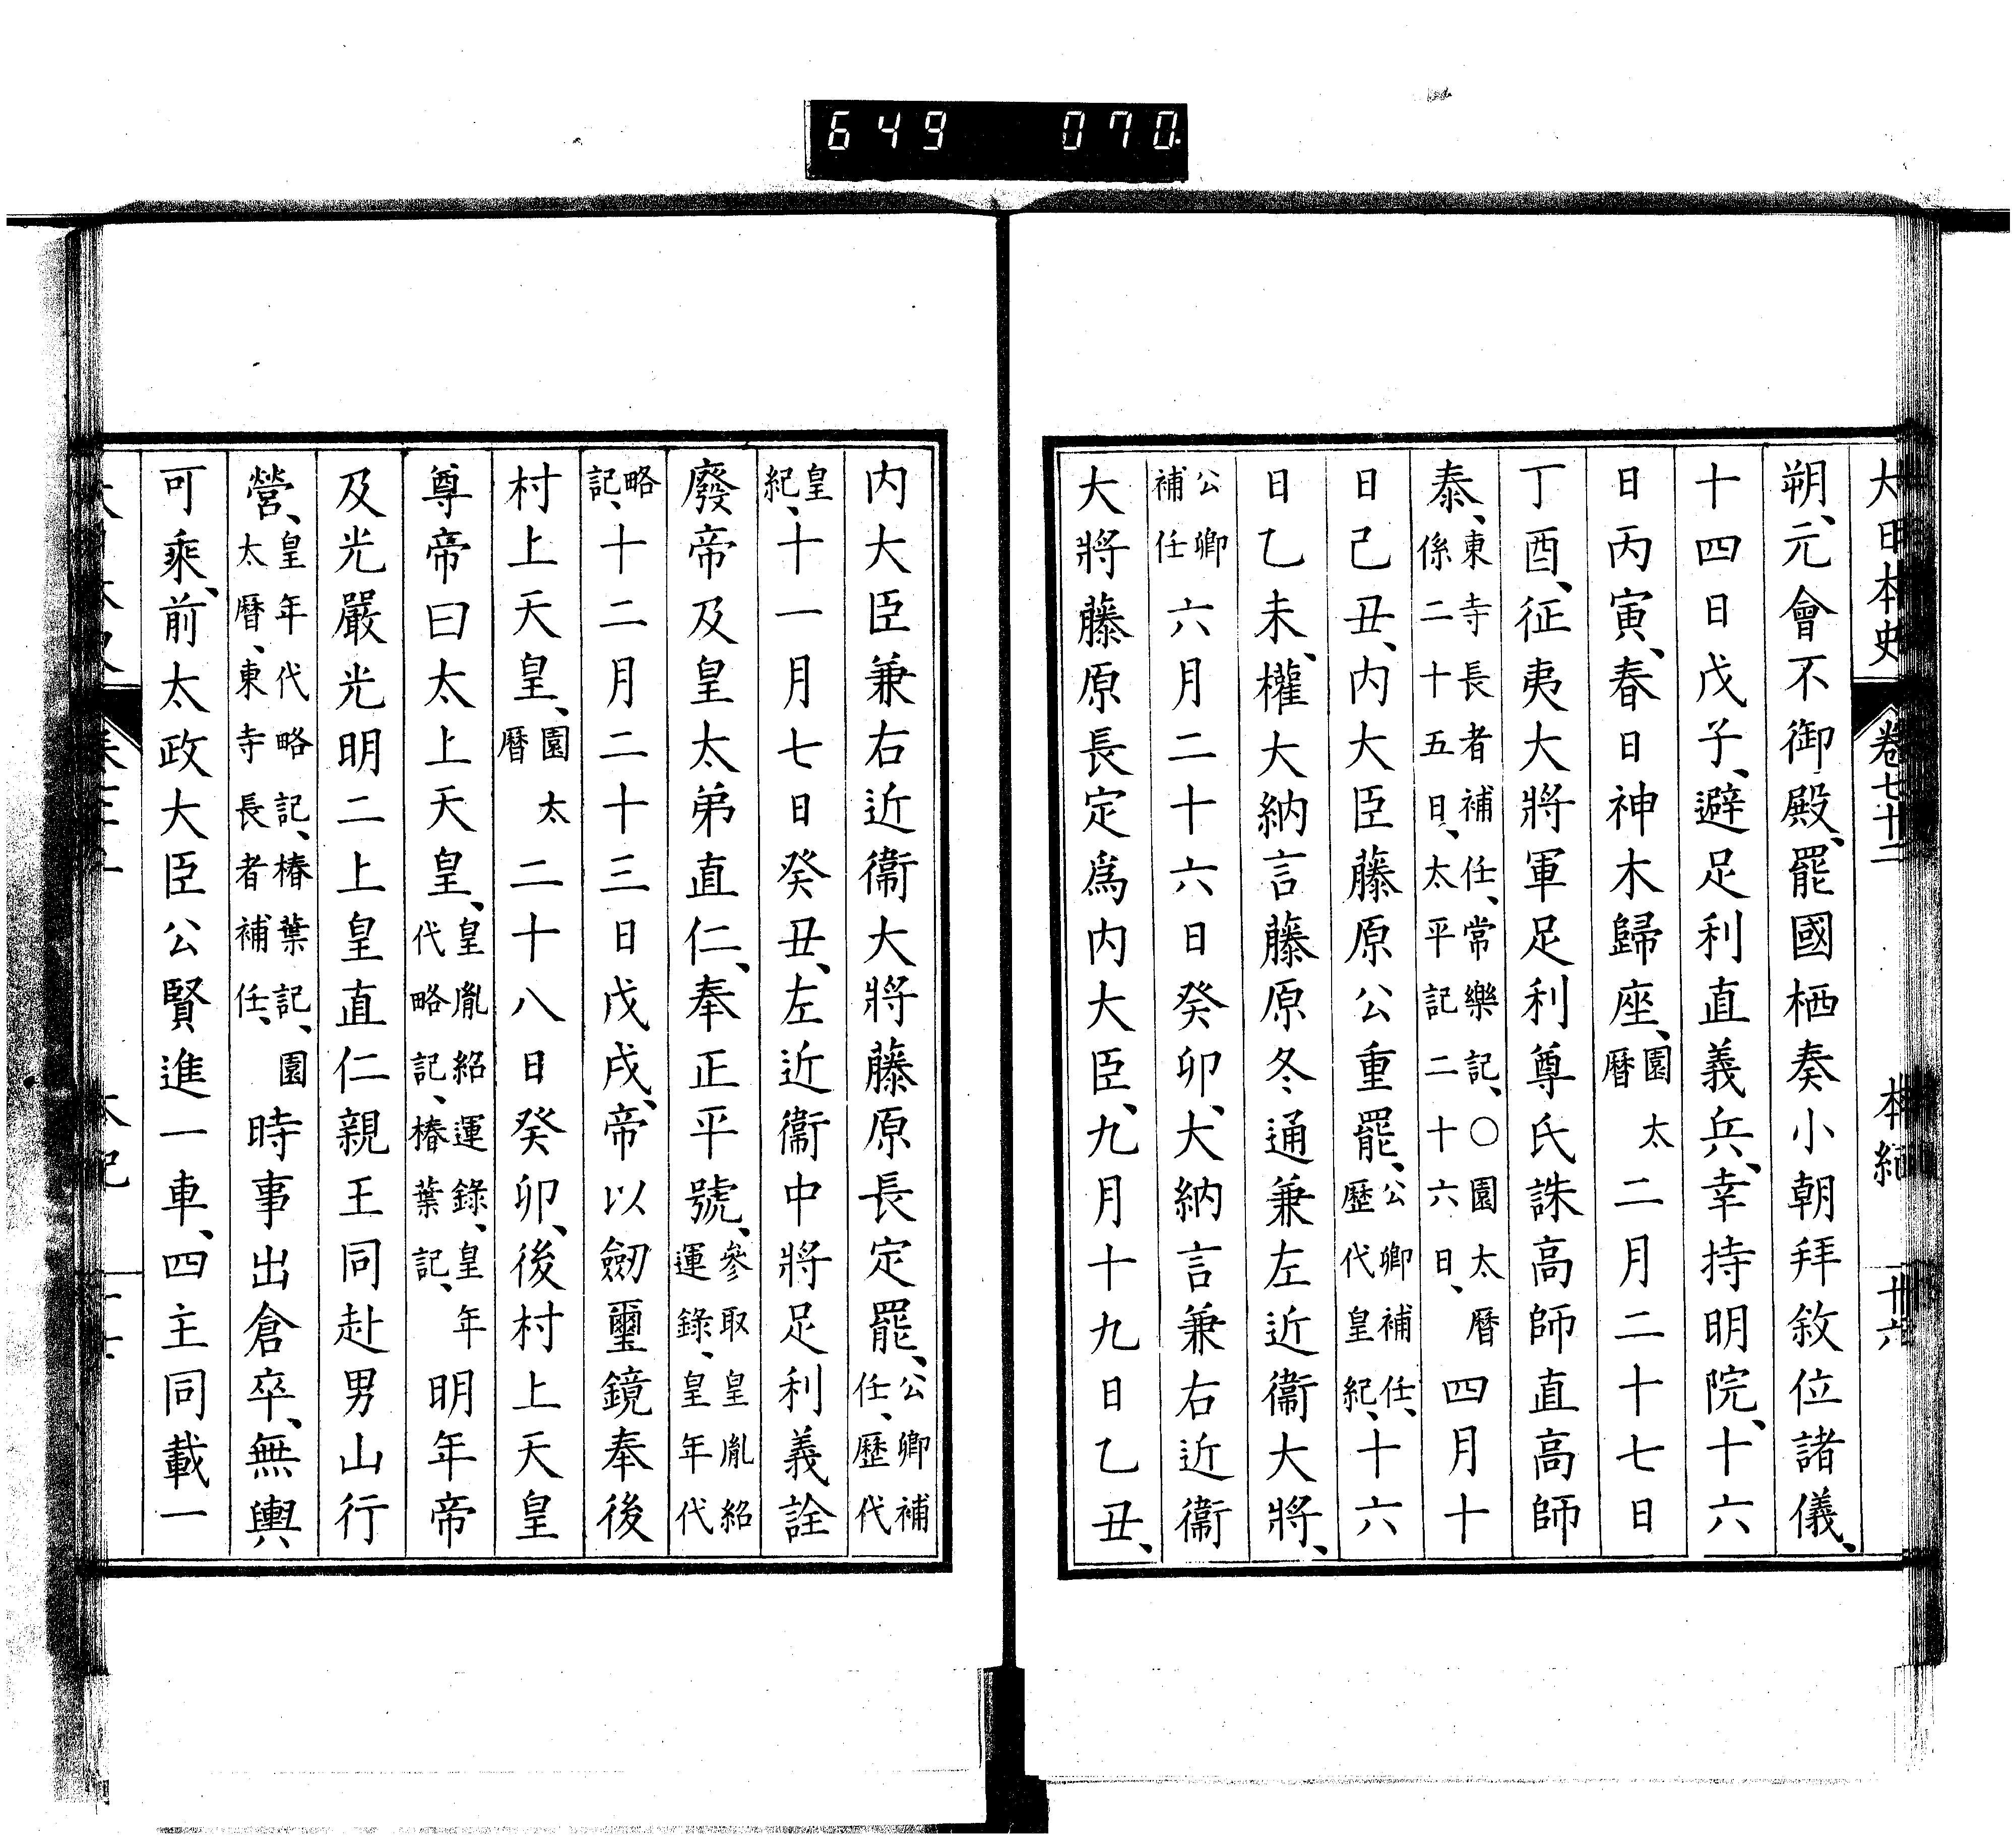 649 070
大日本史 卷七十二 本紀 廿六
朔、元會不御殿、罷國栖奏小朝拜敘位諸儀、
十四日戊子、避足利直義兵、幸持明院、十六
日丙寅、春日神木歸座、園太曆二月二十七日
丁酉、征夷大將軍足利尊氏誅高師直高師
泰、東寺長者補任、常樂記、〇園太曆係二十五日、太平記二十六日、四月十
日己丑、内大臣藤原公重罷、公卿補任、歷代皇紀、十六
日乙未、權大納言藤原冬通兼左近衞大將、
公卿補任六月二十六日癸卯、大納言兼右近衞
大將藤原長定爲内大臣、九月十九日乙丑、
内大臣兼右近衞大將藤原長定罷、公卿補任、歷代
皇紀、十一月七日癸丑、左近衞中將足利義詮
廢帝及皇太弟直仁、奉正平號、參取皇胤紹運錄、皇年代
略記、十二月二十三日戊戌、帝以劒璽鏡奉後
村上天皇、園太曆二十八日癸卯、後村上天皇
尊帝曰太上天皇、皇胤紹運錄、皇年代略記、椿葉記、明年帝
及光嚴光明二上皇直仁親王同赴男山行
營、皇年代略記、椿葉記、園太曆、東寺長者補任、時事出倉卒、無輿
可乘、前太政大臣公賢進一車、四主同載一